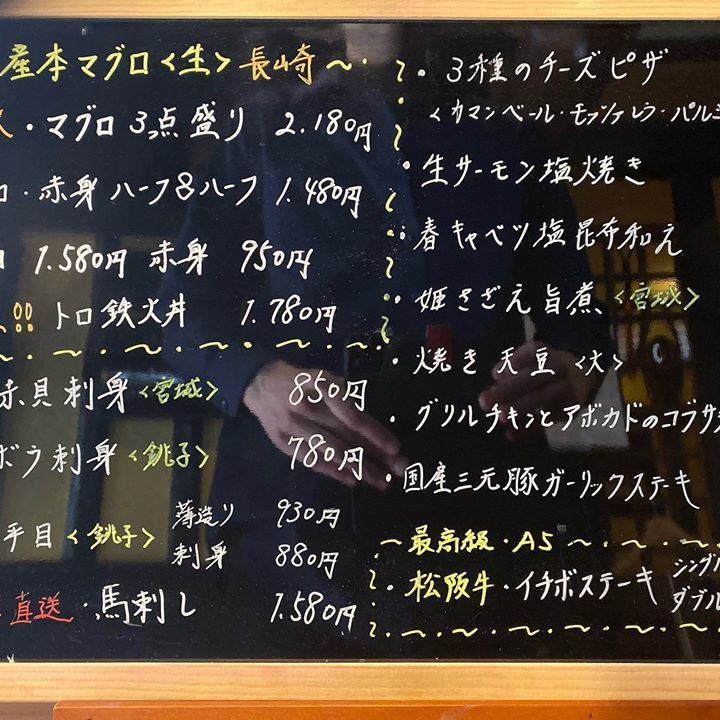 産本マグロ<生> 長崎 〜
・マグロ3点盛り 2.180円
・赤身ハーフ&ハーフ 1.480円
1.580円 赤身 950円
品 トロ鉄火丼 1.780円
赤貝刺身<宮城> 850円
ボラ刺身<銚子> 780円
平目<銚子> 薄造り 930円
刺身 880円
直送・馬刺し 1.580円
・3種のチーズピザ
<カマンベール・モッツァレラ・パルミ
・生サーモン塩焼き
・春キャベツ塩昆布和え
・姫さざえ旨煮<宮城>
・焼き天豆<大>
・グリルチキンとアボカドのコブサラ
・国産三元豚ガーリックステーキ
〜最高級・A5〜
・松阪牛・イチボステーキ シングル
ダブル